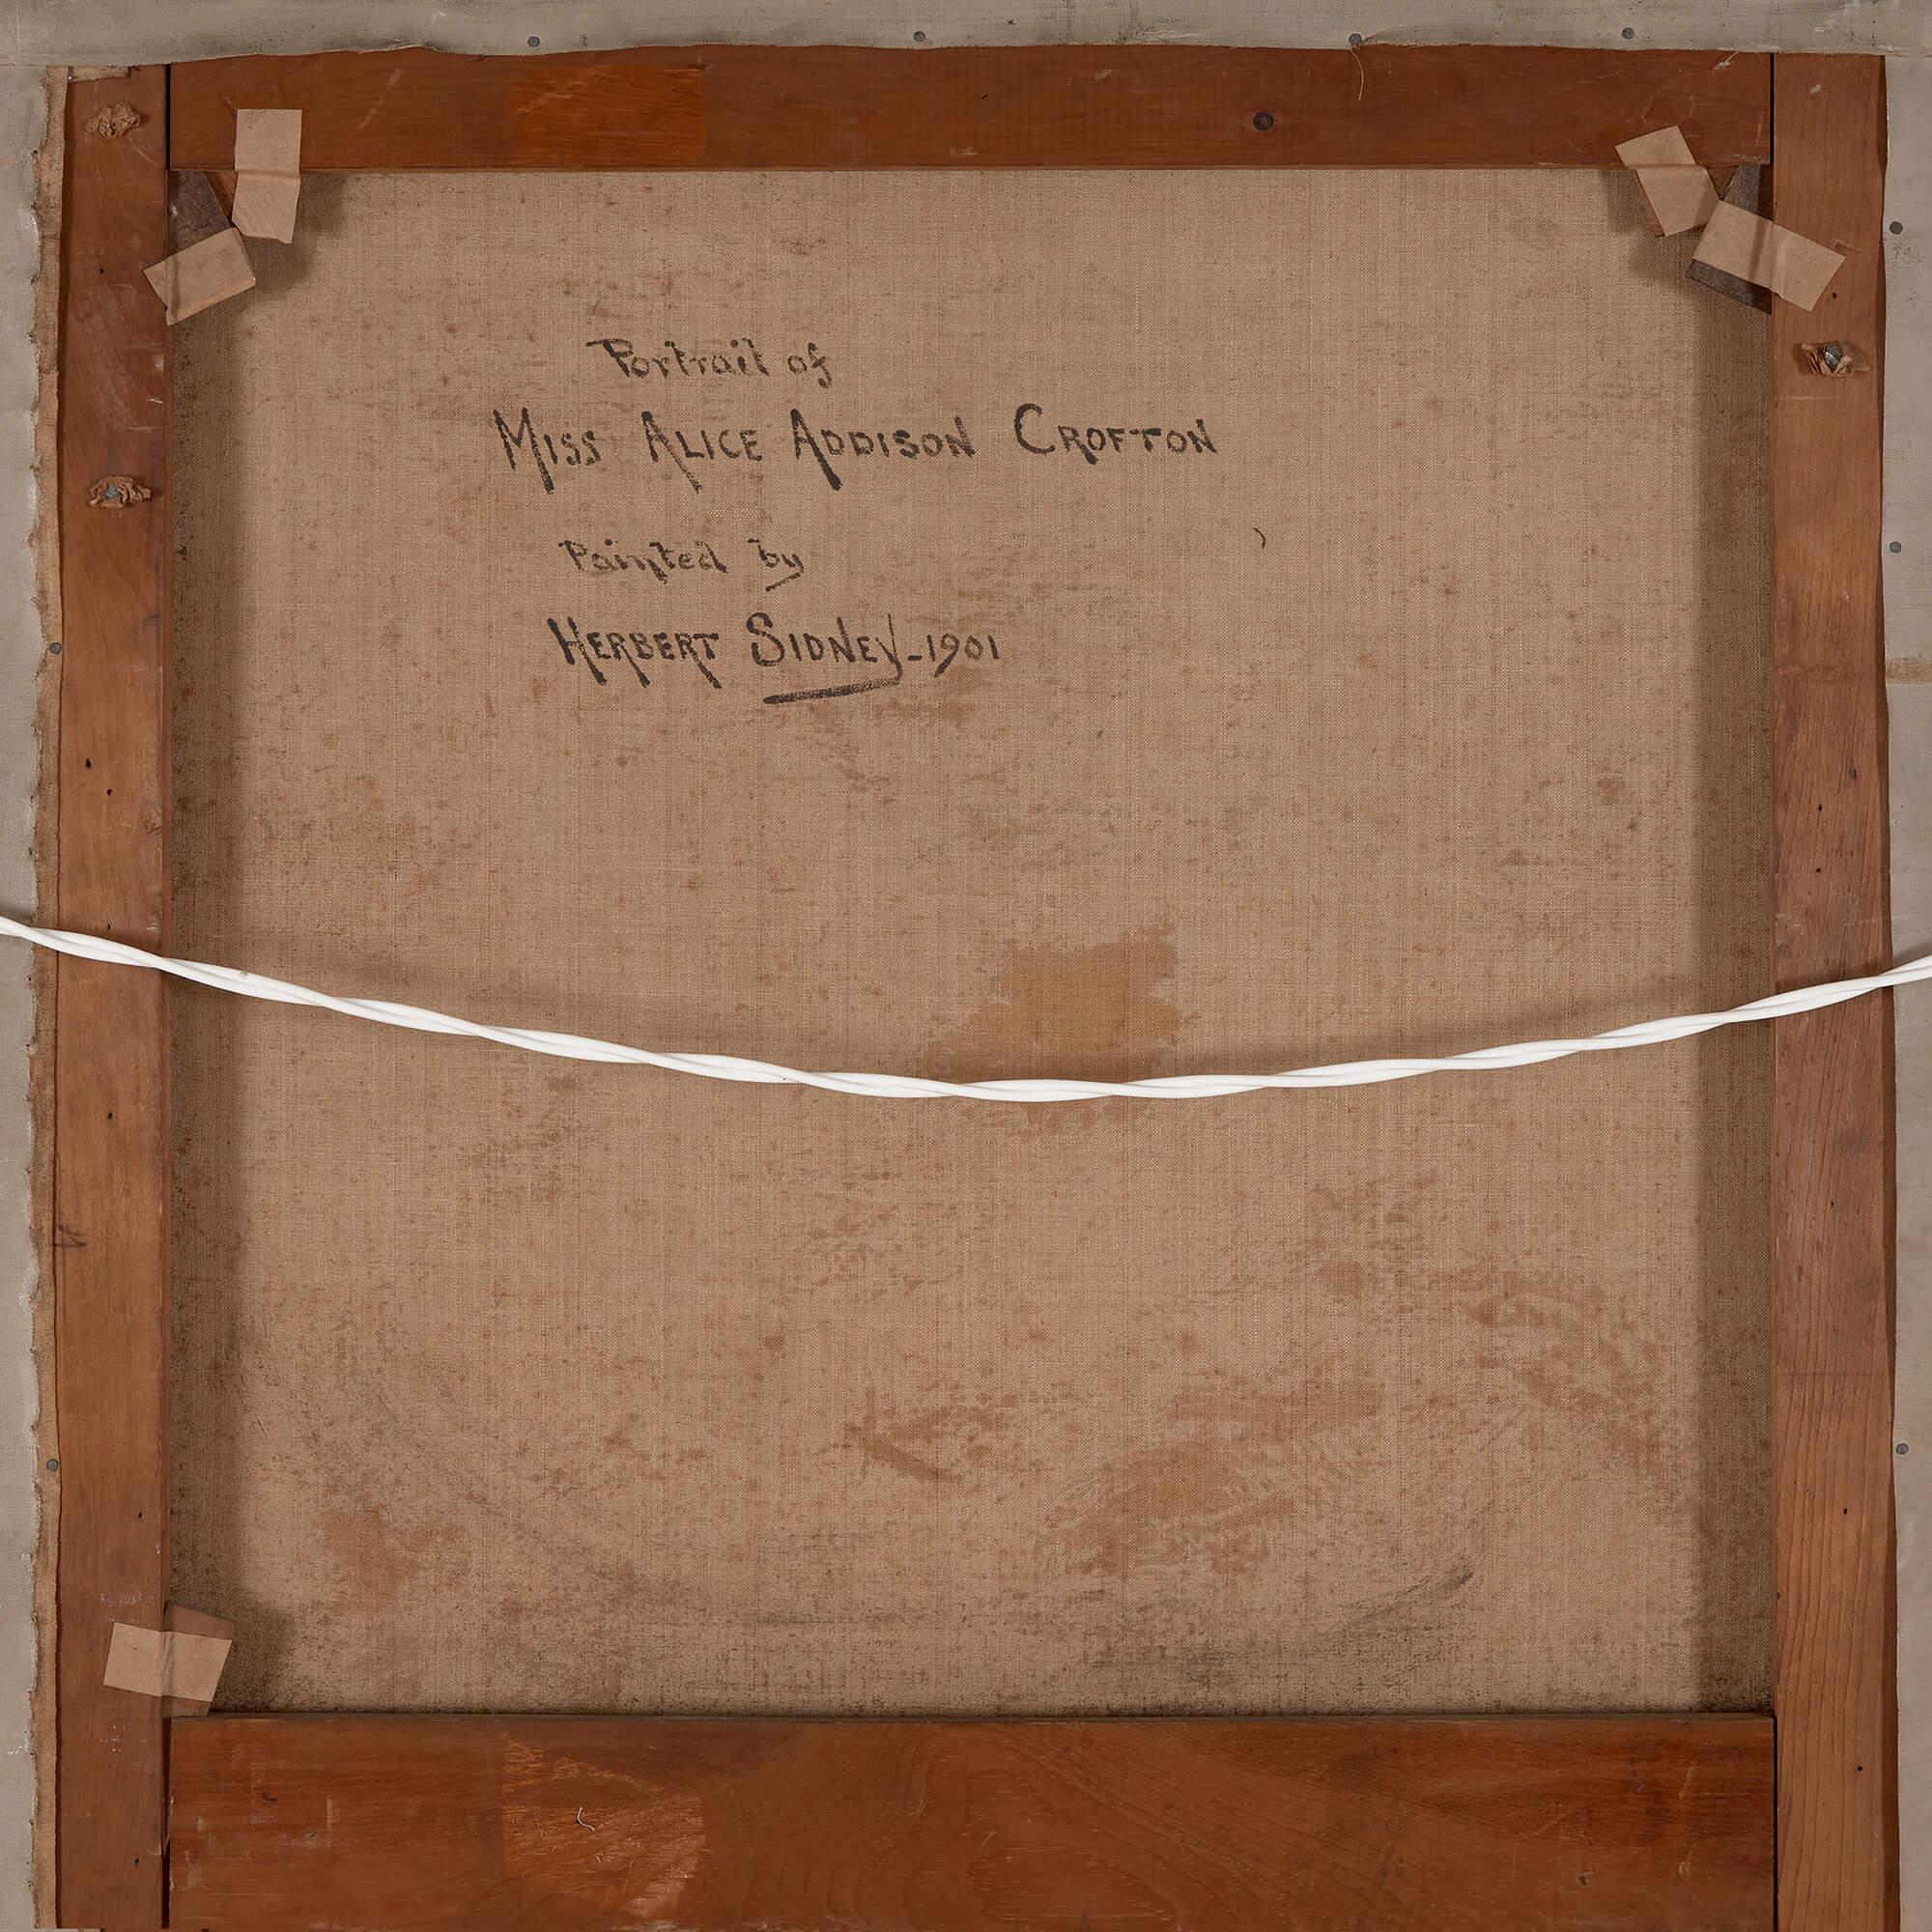 Portrait of
MISS ALICE ADDISON CROFTON
Painted by
HERBERT SIDNEY-1901